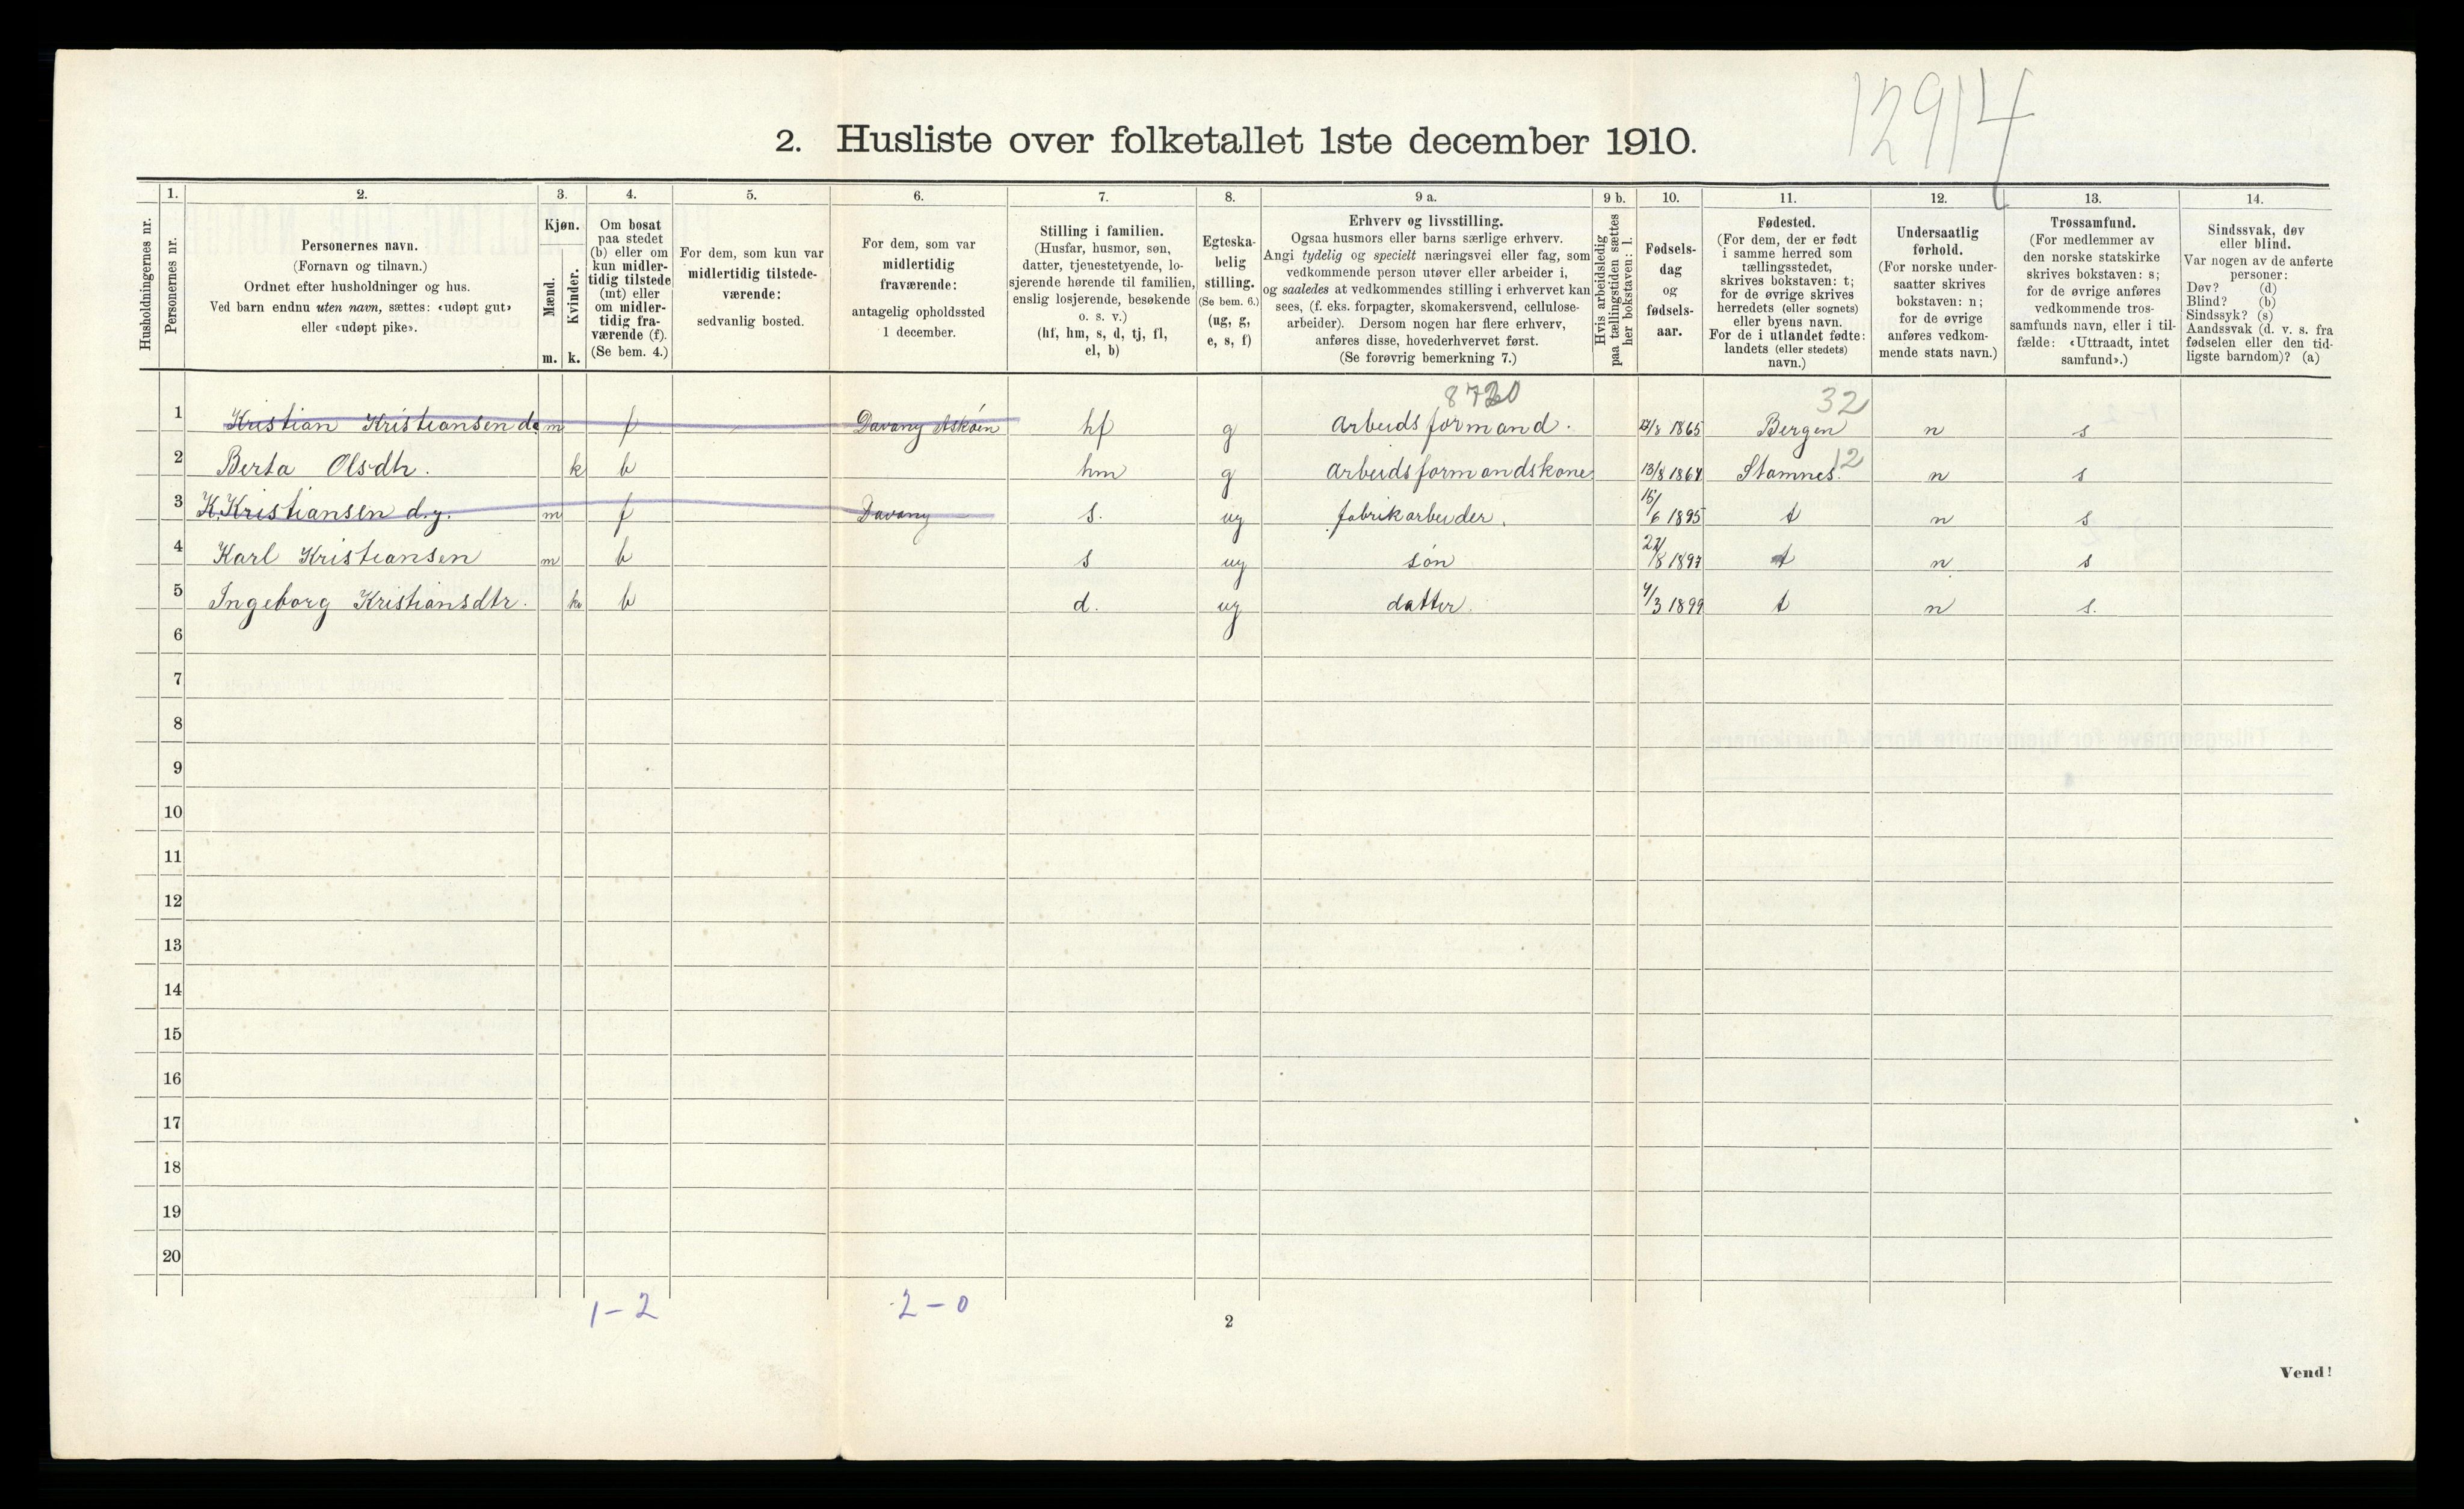 12914
2. Husliste over folketallet 1ste december 1910.
Husholdningernes nr.
1.
Personernes nr.
2.
Personernes navn.
(Fornavn og tilnavn.)
Ordnet efter husholdninger og hus.
Ved barn endnu uten navn, sættes: «udøpt gut»
eller «udøpt pike».
3.
Kjøn.
Mænd.
Kvinder.
m. k.
4.
Om bosat
paa stedet
(b) eller om
kun midler-
tidig tilstede
(mt) eller
om midler-
tidig fra-
værende (f).
(Se bem. 4.)
5.
For dem, som kun var
midlertidig tilstede-
værende:
sedvanlig bosted.
6.
For dem, som var
midlertidig
fraværende:
antagelig opholdssted
1 december.
7.
Stilling i familien.
(Husfar, husmor, søn,
datter, tjenestetyende, lo-
sjerende hørende til familien,
enslig losjerende, besøkende
o. s. v.)
(hf, hm, s, d, tj, fl,
el, b)
8.
Egteska-
belig
stilling.
(Se bem. 6.)
(ug, g,
e, s, f)
9 a.
Erhverv og livsstilling.
Ogsaa husmors eller barns særlige erhverv.
Angi tydelig og specielt næringsvei eller fag, som
vedkommende person utøver eller arbeider i,
og saaledes at vedkommendes stilling i erhvervet kan
sees, (f. eks. forpagter, skomakersvend, cellulose-
arbeider). Dersom nogen har flere erhverv,
anføres disse, hovederhvervet først.
(Se forøvrig bemerkning 7.)
9 b.
Hvis arbeidsledig
paa tællingstiden sættes
her bokstaven: l.
10.
Fødsels-
dag
og
fødsels-
aar.
11.
Fødested.
(For dem, der er født
i samme herred som
tællingsstedet,
skrives bokstaven: t;
for de øvrige skrives
herredets (eller sognets)
eller byens navn.
For de i utlandet fødte:
landets (eller stedets)
navn.)
12.
Undersaatlig
forhold.
(For norske under-
saatter skrives
bokstaven: n;
for de øvrige
anføres vedkom-
mende stats navn.)
13.
Trossamfund.
(For medlemmer av
den norske statskirke
skrives bokstaven: s;
for de øvrige anføres
vedkommende tros-
samfunds navn, eller i til-
fælde: «Uttraadt, intet
samfund».)
14.
Sindssvak, døv
eller blind.
Var nogen av de anførte
personer:
Døv? (d)
Blind? (b)
Sindssyk? (s)
Aandssvak (d. v. s. fra
fødselen eller den tid-
ligste barndom)? (a)
8720 32
1 Kristian Kristiansen m f Davang Askøen hf g Arbeidsformand. 1865 Bergen n s
2 Berta Olsdtr. k b hm g Arbeidsformandskone 13/8 1864 Stamnes. 12 n s
3 K. Kristiansen d.y. m f Davang s. ug fabrikarbeider. 15/6 1895 t n s
4 Karl Kristiansen m b s ug søn 1897 t n s
5 Ingeborg Kristiansdtr. k b d. ug datter. 4/3 1899 t n s.
6
7
8
9
10
11
12
13
14
15
16
17
18
19
20
1 - 2 2 - 0
2
Vend!